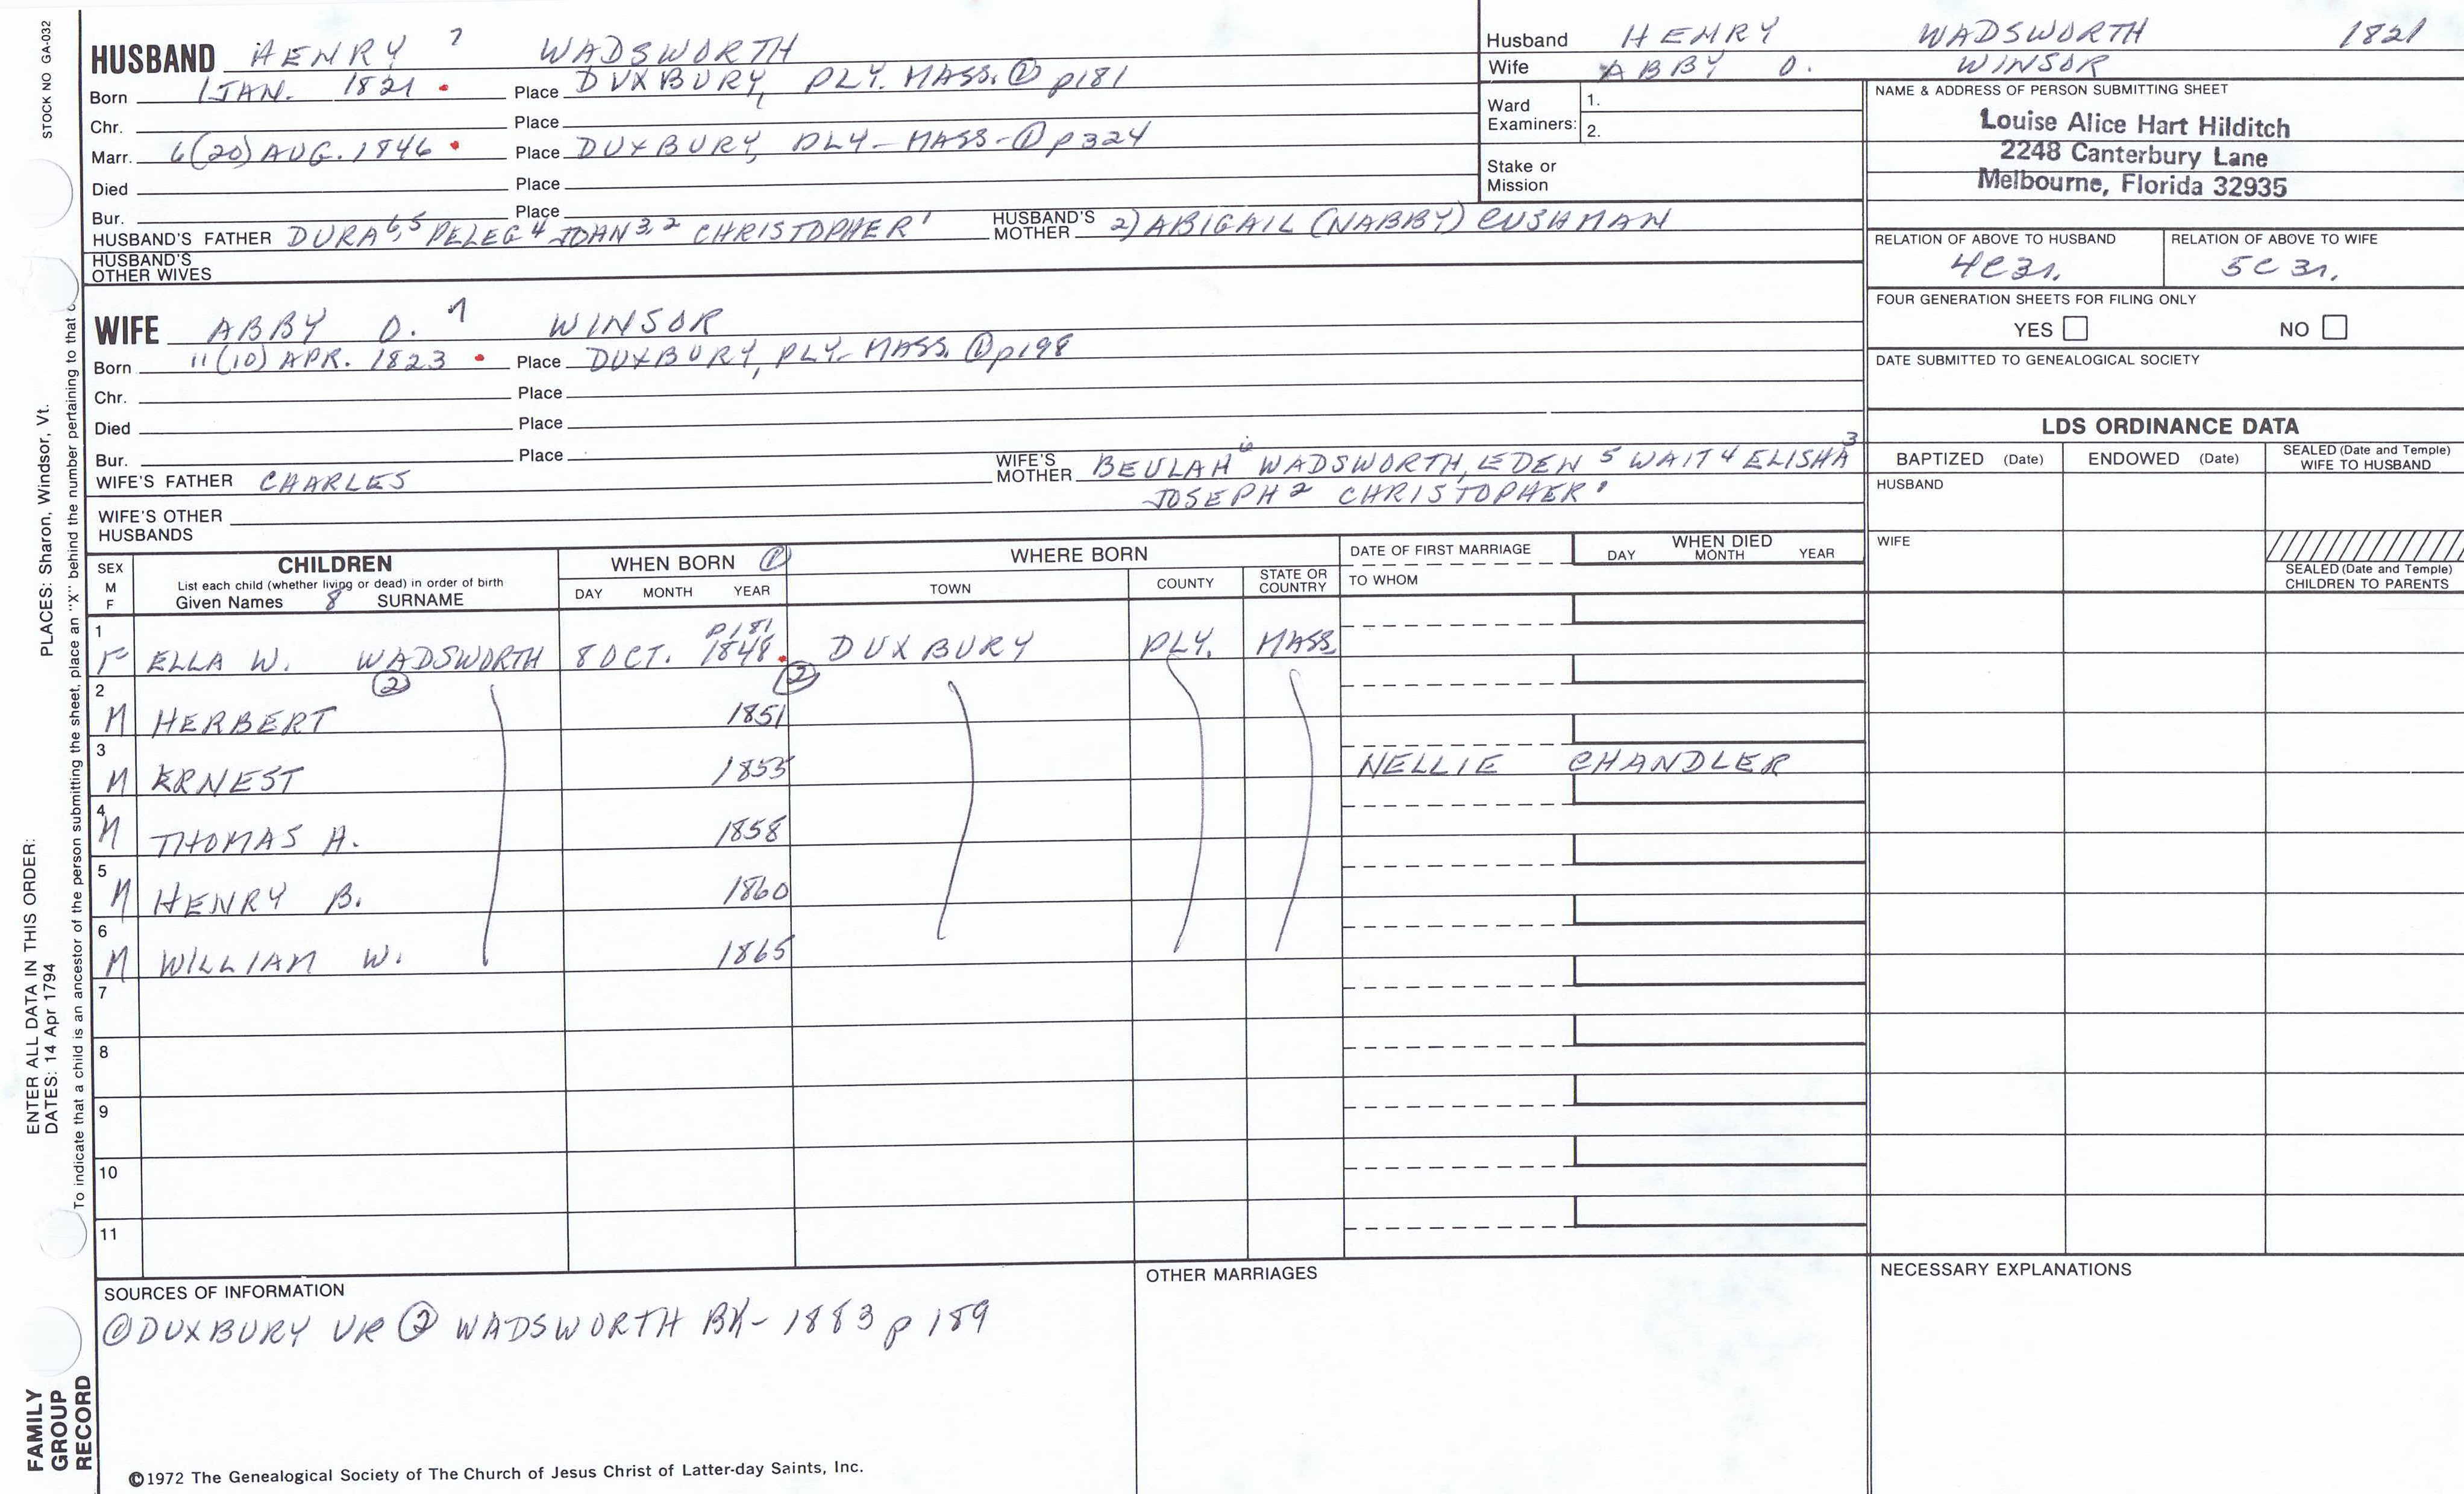 STOCK NO GA-032
HUSBAND HENRY 7 WADSWORTH
Born 1 JAN. 1821 . Place DUXBURY, PLY. MASS. ① p181
Chr. Place
Marr. 6(20) AUG. 1846 . Place DUXBURY, PLY- MASS- ① p324
Died Place
Bur. Place
HUSBAND'S FATHER DURA 6,5 PELEG 4 JOHN 3,2 CHRISTOPHER 1
HUSBAND'S MOTHER 2) ABIGAIL (NABBY) CUSHMAN
HUSBAND'S
OTHER WIVES
WIFE ABBY O. 7 WINSOR
Born 11(10) APR. 1823 . Place DUXBURY, PLY- MASS. ① p198
Chr. Place
Died Place
Bur. Place
WIFE'S FATHER CHARLES
WIFE'S MOTHER BEULAH 6 WADSWORTH, EDEN 5 WAIT 4 ELISHA 3
JOSEPH 2 CHRISTOPHER 1
WIFE'S OTHER
HUSBANDS
Husband HENRY WADSWORTH 1821
Wife ABBY O. WINSOR
Ward
Examiners: 1.
2.
Stake or
Mission
NAME & ADDRESS OF PERSON SUBMITTING SHEET
Louise Alice Hart Hilditch
2248 Canterbury Lane
Melbourne, Florida 32935
RELATION OF ABOVE TO HUSBAND RELATION OF ABOVE TO WIFE
4C3r. 5C3r.
FOUR GENERATION SHEETS FOR FILING ONLY
YES NO
DATE SUBMITTED TO GENEALOGICAL SOCIETY
LDS ORDINANCE DATA
BAPTIZED (Date) ENDOWED (Date) SEALED (Date and Temple)
WIFE TO HUSBAND
HUSBAND
WIFE
SEALED (Date and Temple)
CHILDREN TO PARENTS
SEX
M
F
CHILDREN
List each child (whether living or dead) in order of birth
Given Names 8 SURNAME
WHEN BORN ①
DAY MONTH YEAR
WHERE BORN
TOWN COUNTY STATE OR
COUNTRY
DATE OF FIRST MARRIAGE
TO WHOM
WHEN DIED
DAY MONTH YEAR
p181
1 F ELLA W. WADSWORTH 8 OCT. 1848. DUXBURY PLY. MASS.
② ②
2 M HERBERT 1851
3 M ERNEST 1855 NELLIE CHANDLER
4 M THOMAS A. 1858
5 M HENRY B. 1860
6 M WILLIAM W. 1865
7
8
9
10
11
SOURCES OF INFORMATION
① DUXBURY VR ② WADSWORTH BK- 1883 p 189
OTHER MARRIAGES
NECESSARY EXPLANATIONS
©1972 The Genealogical Society of The Church of Jesus Christ of Latter-day Saints, Inc.
FAMILY
GROUP
RECORD
ENTER ALL DATA IN THIS ORDER:
DATES: 14 Apr 1794
PLACES: Sharon, Windsor, Vt.
To indicate that a child is an ancestor of the person submitting the sheet, place an "X" behind the number pertaining to that